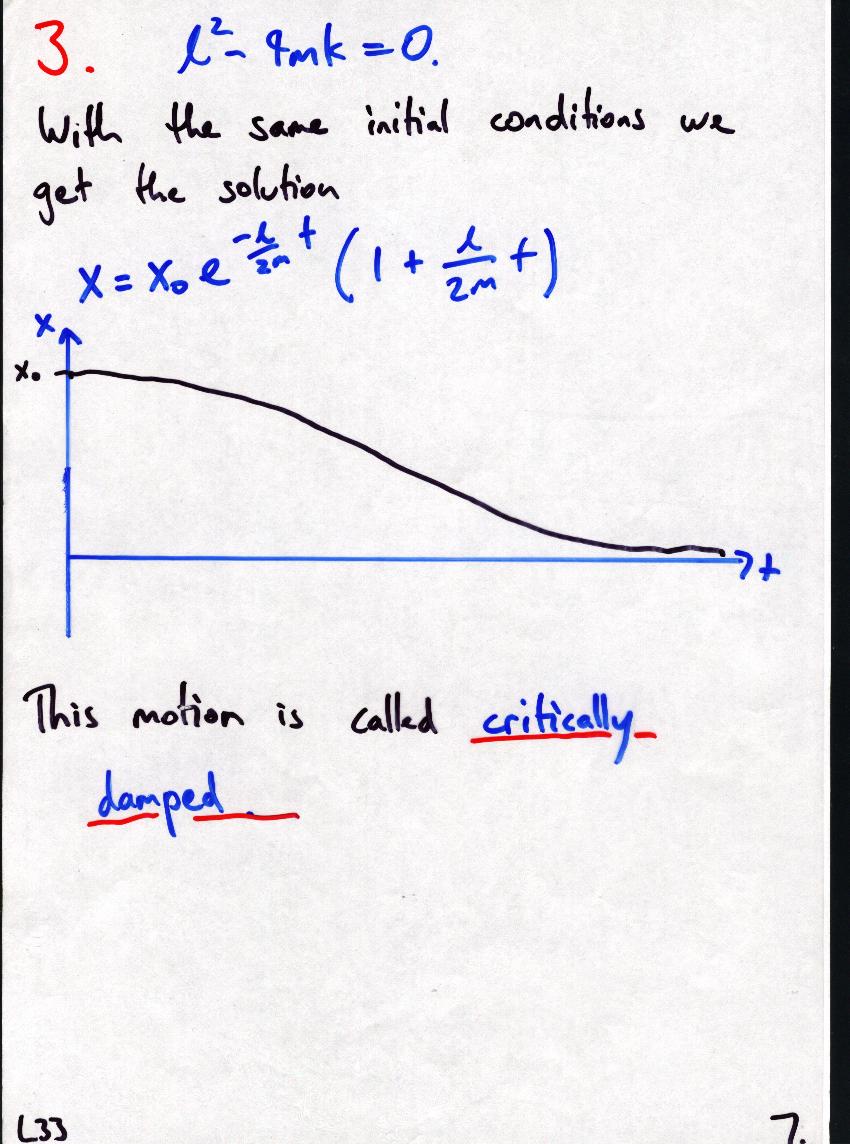 3. l² - 4mk = 0.
With the same initial conditions we
get the solution
x = x₀ e^(-l/2m t) (1 + l/2m t)
x
x₀
t
This motion is called critically
damped.
L33
7.